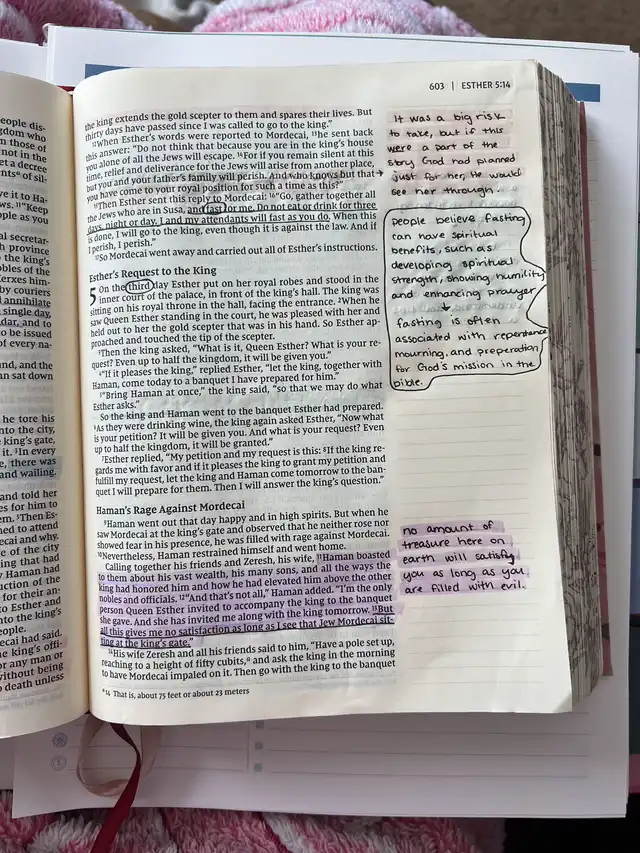 603 | ESTHER 5:14
the king extends the gold scepter to them and spares their lives. But
thirty days have passed since I was called to go to the king."
12When Esther's words were reported to Mordecai, 13he sent back
this answer: "Do not think that because you are in the king's house
you alone of all the Jews will escape. 14For if you remain silent at this
time, relief and deliverance for the Jews will arise from another place,
but you and your father's family will perish. And who knows but that
you have come to your royal position for such a time as this?"
15Then Esther sent this reply to Mordecai: 16"Go, gather together all
the Jews who are in Susa, and fast for me. Do not eat or drink for three
days, night or day. I and my attendants will fast as you do. When this
is done, I will go to the king, even though it is against the law. And if
I perish, I perish."
17So Mordecai went away and carried out all of Esther's instructions.
Esther's Request to the King
5 On the third day Esther put on her royal robes and stood in the
inner court of the palace, in front of the king's hall. The king was
sitting on his royal throne in the hall, facing the entrance. 2When he
saw Queen Esther standing in the court, he was pleased with her and
held out to her the gold scepter that was in his hand. So Esther ap-
proached and touched the tip of the scepter.
3Then the king asked, "What is it, Queen Esther? What is your re-
quest? Even up to half the kingdom, it will be given you."
4"If it pleases the king," replied Esther, "let the king, together with
Haman, come today to a banquet I have prepared for him."
5"Bring Haman at once," the king said, "so that we may do what
Esther asks."
So the king and Haman went to the banquet Esther had prepared.
6As they were drinking wine, the king again asked Esther, "Now what
is your petition? It will be given you. And what is your request? Even
up to half the kingdom, it will be granted."
7Esther replied, "My petition and my request is this: 8If the king re-
gards me with favor and if it pleases the king to grant my petition and
fulfill my request, let the king and Haman come tomorrow to the ban-
quet I will prepare for them. Then I will answer the king's question."
Haman's Rage Against Mordecai
9Haman went out that day happy and in high spirits. But when he
saw Mordecai at the king's gate and observed that he neither rose nor
showed fear in his presence, he was filled with rage against Mordecai.
10Nevertheless, Haman restrained himself and went home.
Calling together his friends and Zeresh, his wife, 11Haman boasted
to them about his vast wealth, his many sons, and all the ways the
king had honored him and how he had elevated him above the other
nobles and officials. 12"And that's not all," Haman added. "I'm the only
person Queen Esther invited to accompany the king to the banquet
she gave. And she has invited me along with the king tomorrow. 13But
all this gives me no satisfaction as long as I see that Jew Mordecai sit-
ting at the king's gate."
14His wife Zeresh and all his friends said to him, "Have a pole set up,
reaching to a height of fifty cubits,a and ask the king in the morning
to have Mordecai impaled on it. Then go with the king to the banquet
a 14 That is, about 75 feet or about 23 meters
It was a big risk
to take, but if this
were a part of the
story God had planned
just for her, He would
see her through.
people believe fasting
can have spiritual
benefits, such as
developing spiritual
strength, showing humility
and enhancing prayer
fasting is often
associated with repentance
mourning, and preperation
for God's mission in the
bible.
no amount of
treasure here on
earth will satisfy
you as long as you
are filled with evil.